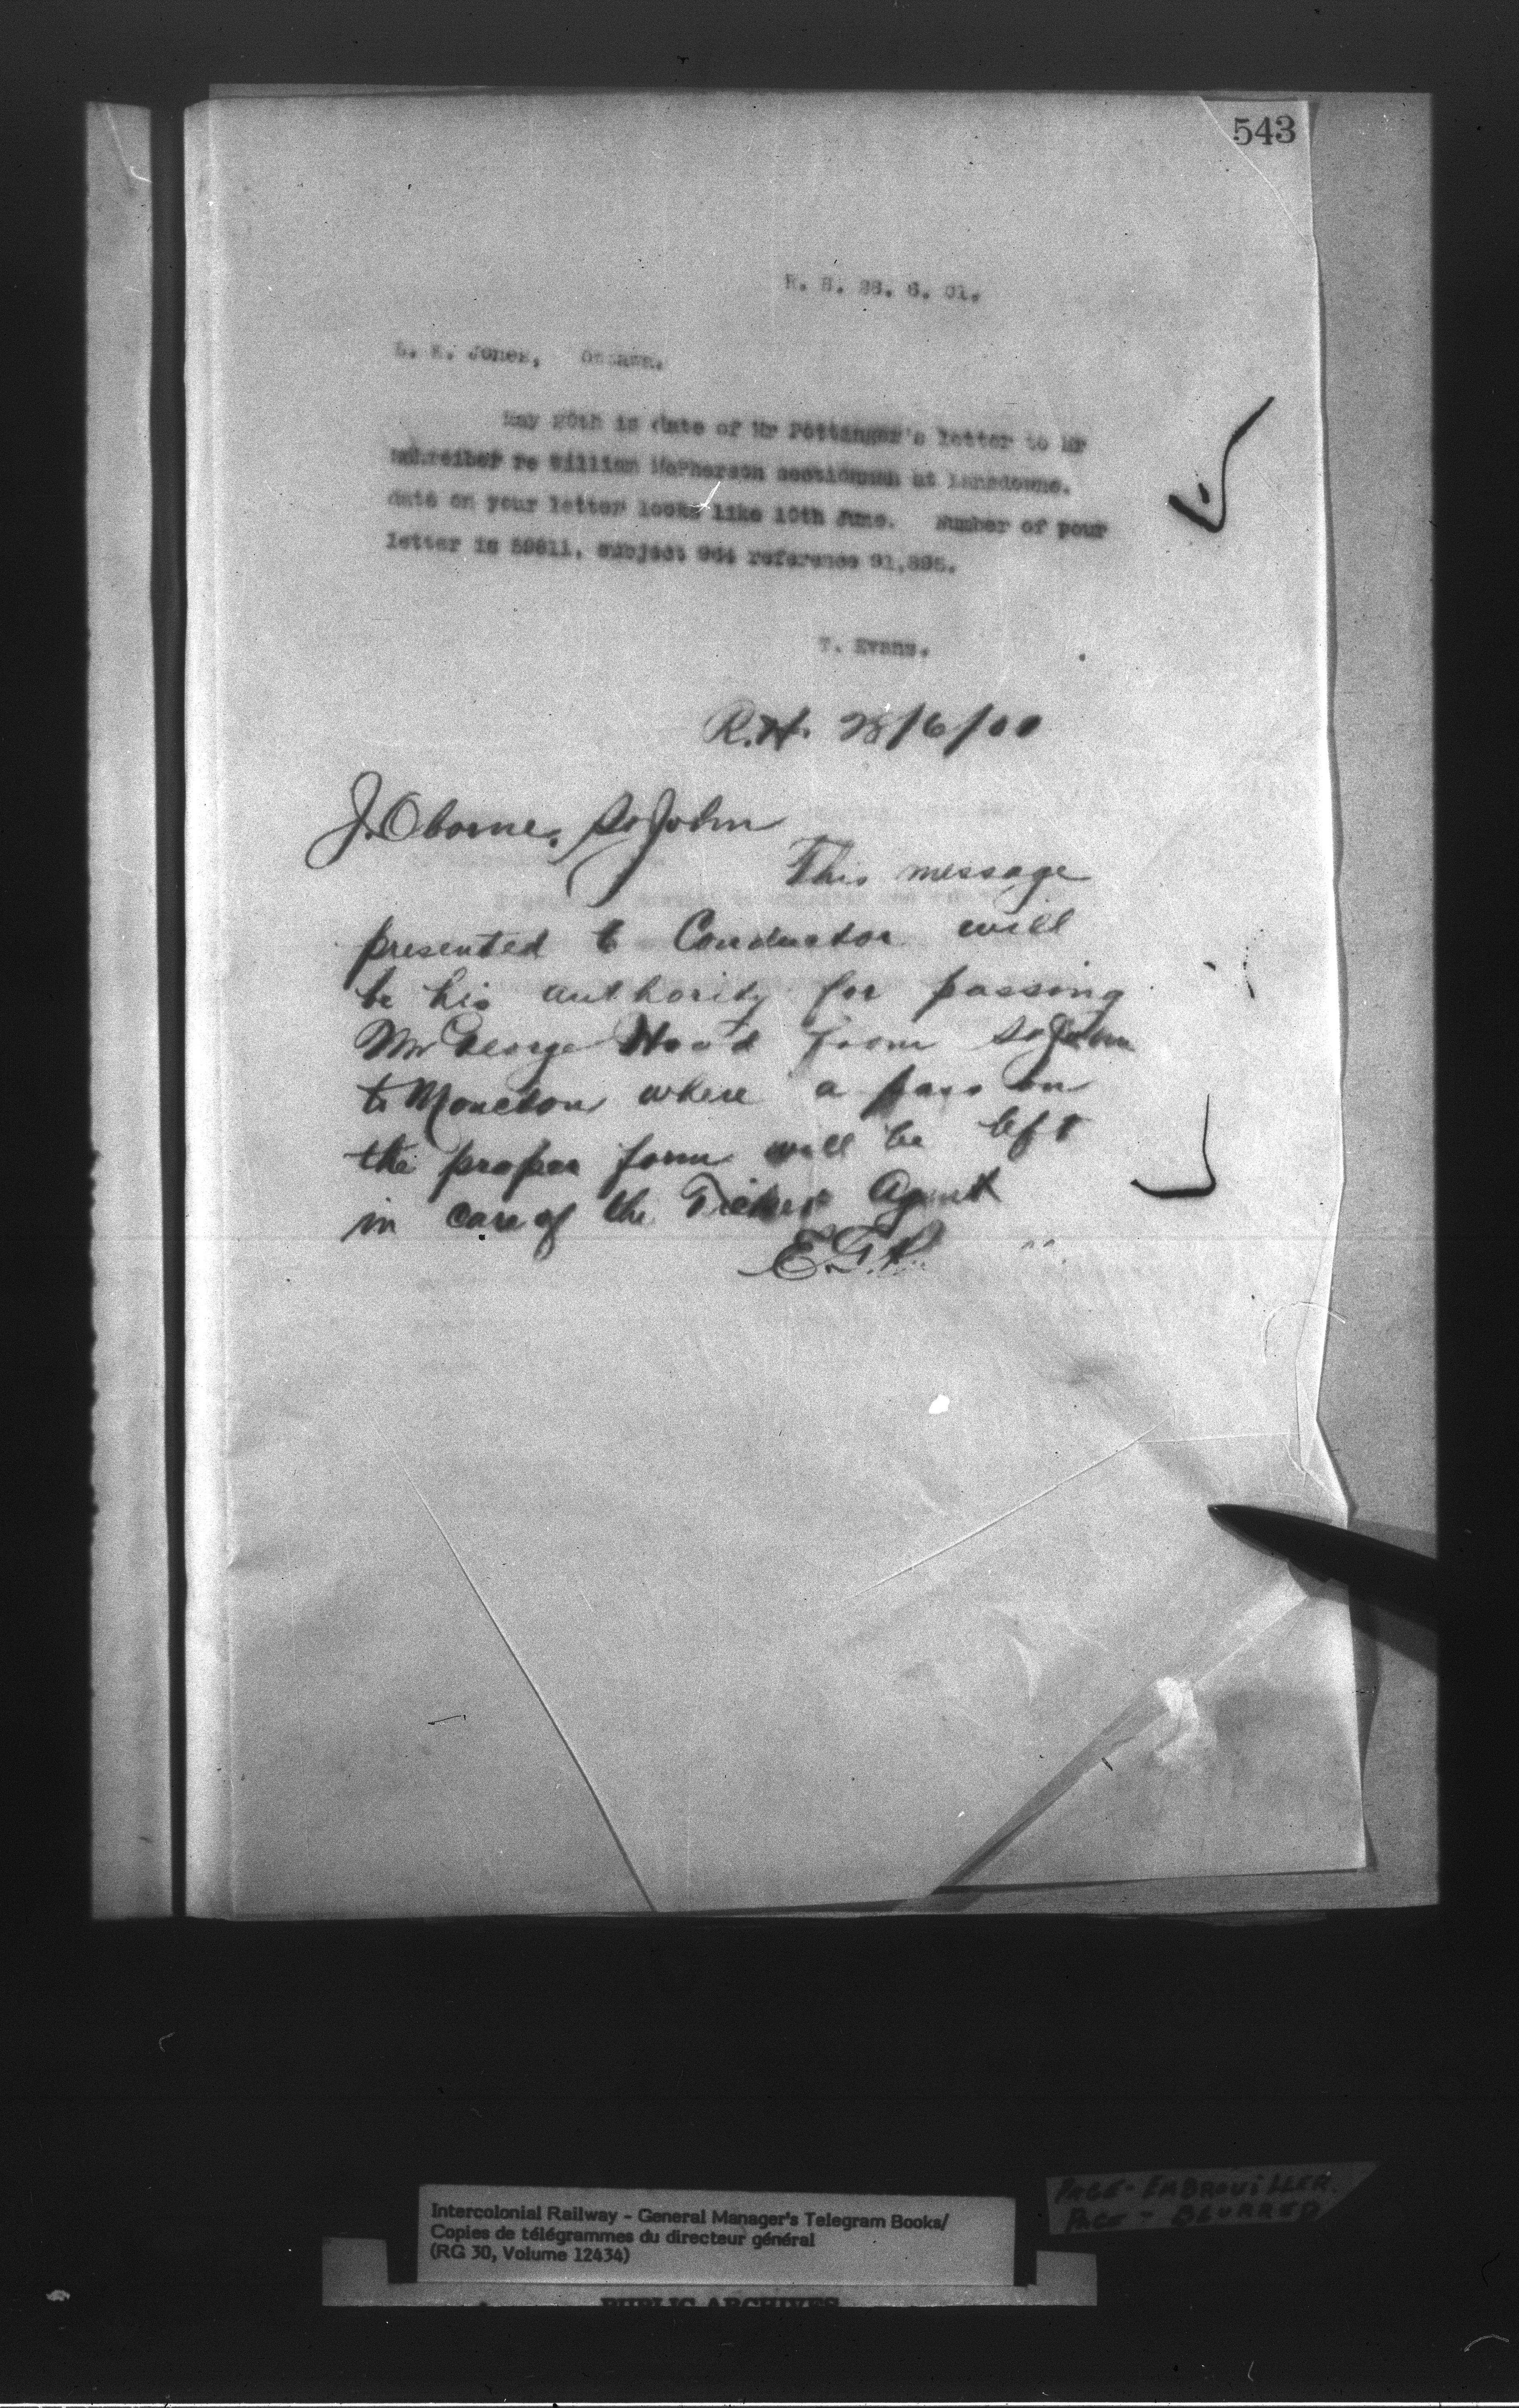 543
R. H. 28. 6. 01.
L. K. Jones, Ottawa.
May 20th is date of Mr Pottinger's letter to Mr
Schreiber re William McPherson sectionman at Lansdowne.
date on your letter looks like 10th June. Number of your
letter is 59811, subject 964 reference 91,895.
T. Evans.
R.H. 28/6/01
J. Oborne, St John
This message
presented to Conductor will
be his authority for passing
Mr George Wood from St John
to Moncton where a pass on
the proper form will be left
in care of the Ticket Agent
E.T.P.
Intercolonial Railway - General Manager's Telegram Books/
Copies de télégrammes du directeur général
(RG 30, Volume 12434)
PAGE - EMBROUILLER.
PAGE - BLURRED
PUBLIC ARCHIVES